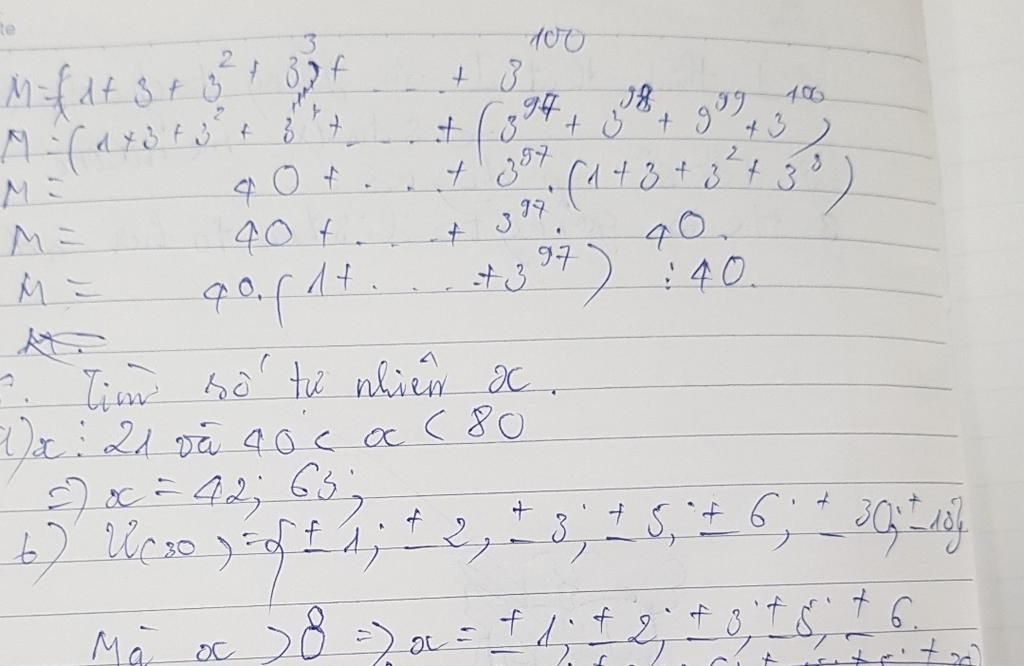 M = (1 + 3 + 3² + 3³) + .... + 3¹⁰⁰
M = (1 + 3 + 3² + 3³ + .... + (3⁹⁷ + 3⁹⁸ + 9⁹⁹ + 3¹⁰⁰)
M = 40 + .... + 3⁹⁷.(1 + 3 + 3² + 3³)
M = 40 + .... + 3⁹⁷. 40.
M = 40.(1 + .... + 3⁹⁷) ⋮ 40.
Tìm số tư nhiên x.
x ⋮ 21 và 40 < x < 80
=> x = 42; 63;
b) Ư(30) = { ± 1; ± 2; ± 3; ± 5; ± 6; ± 30; ± 10}
Mà x > 8 => x = ± 1; ± 2; ± 3; ± 5; ± 6.